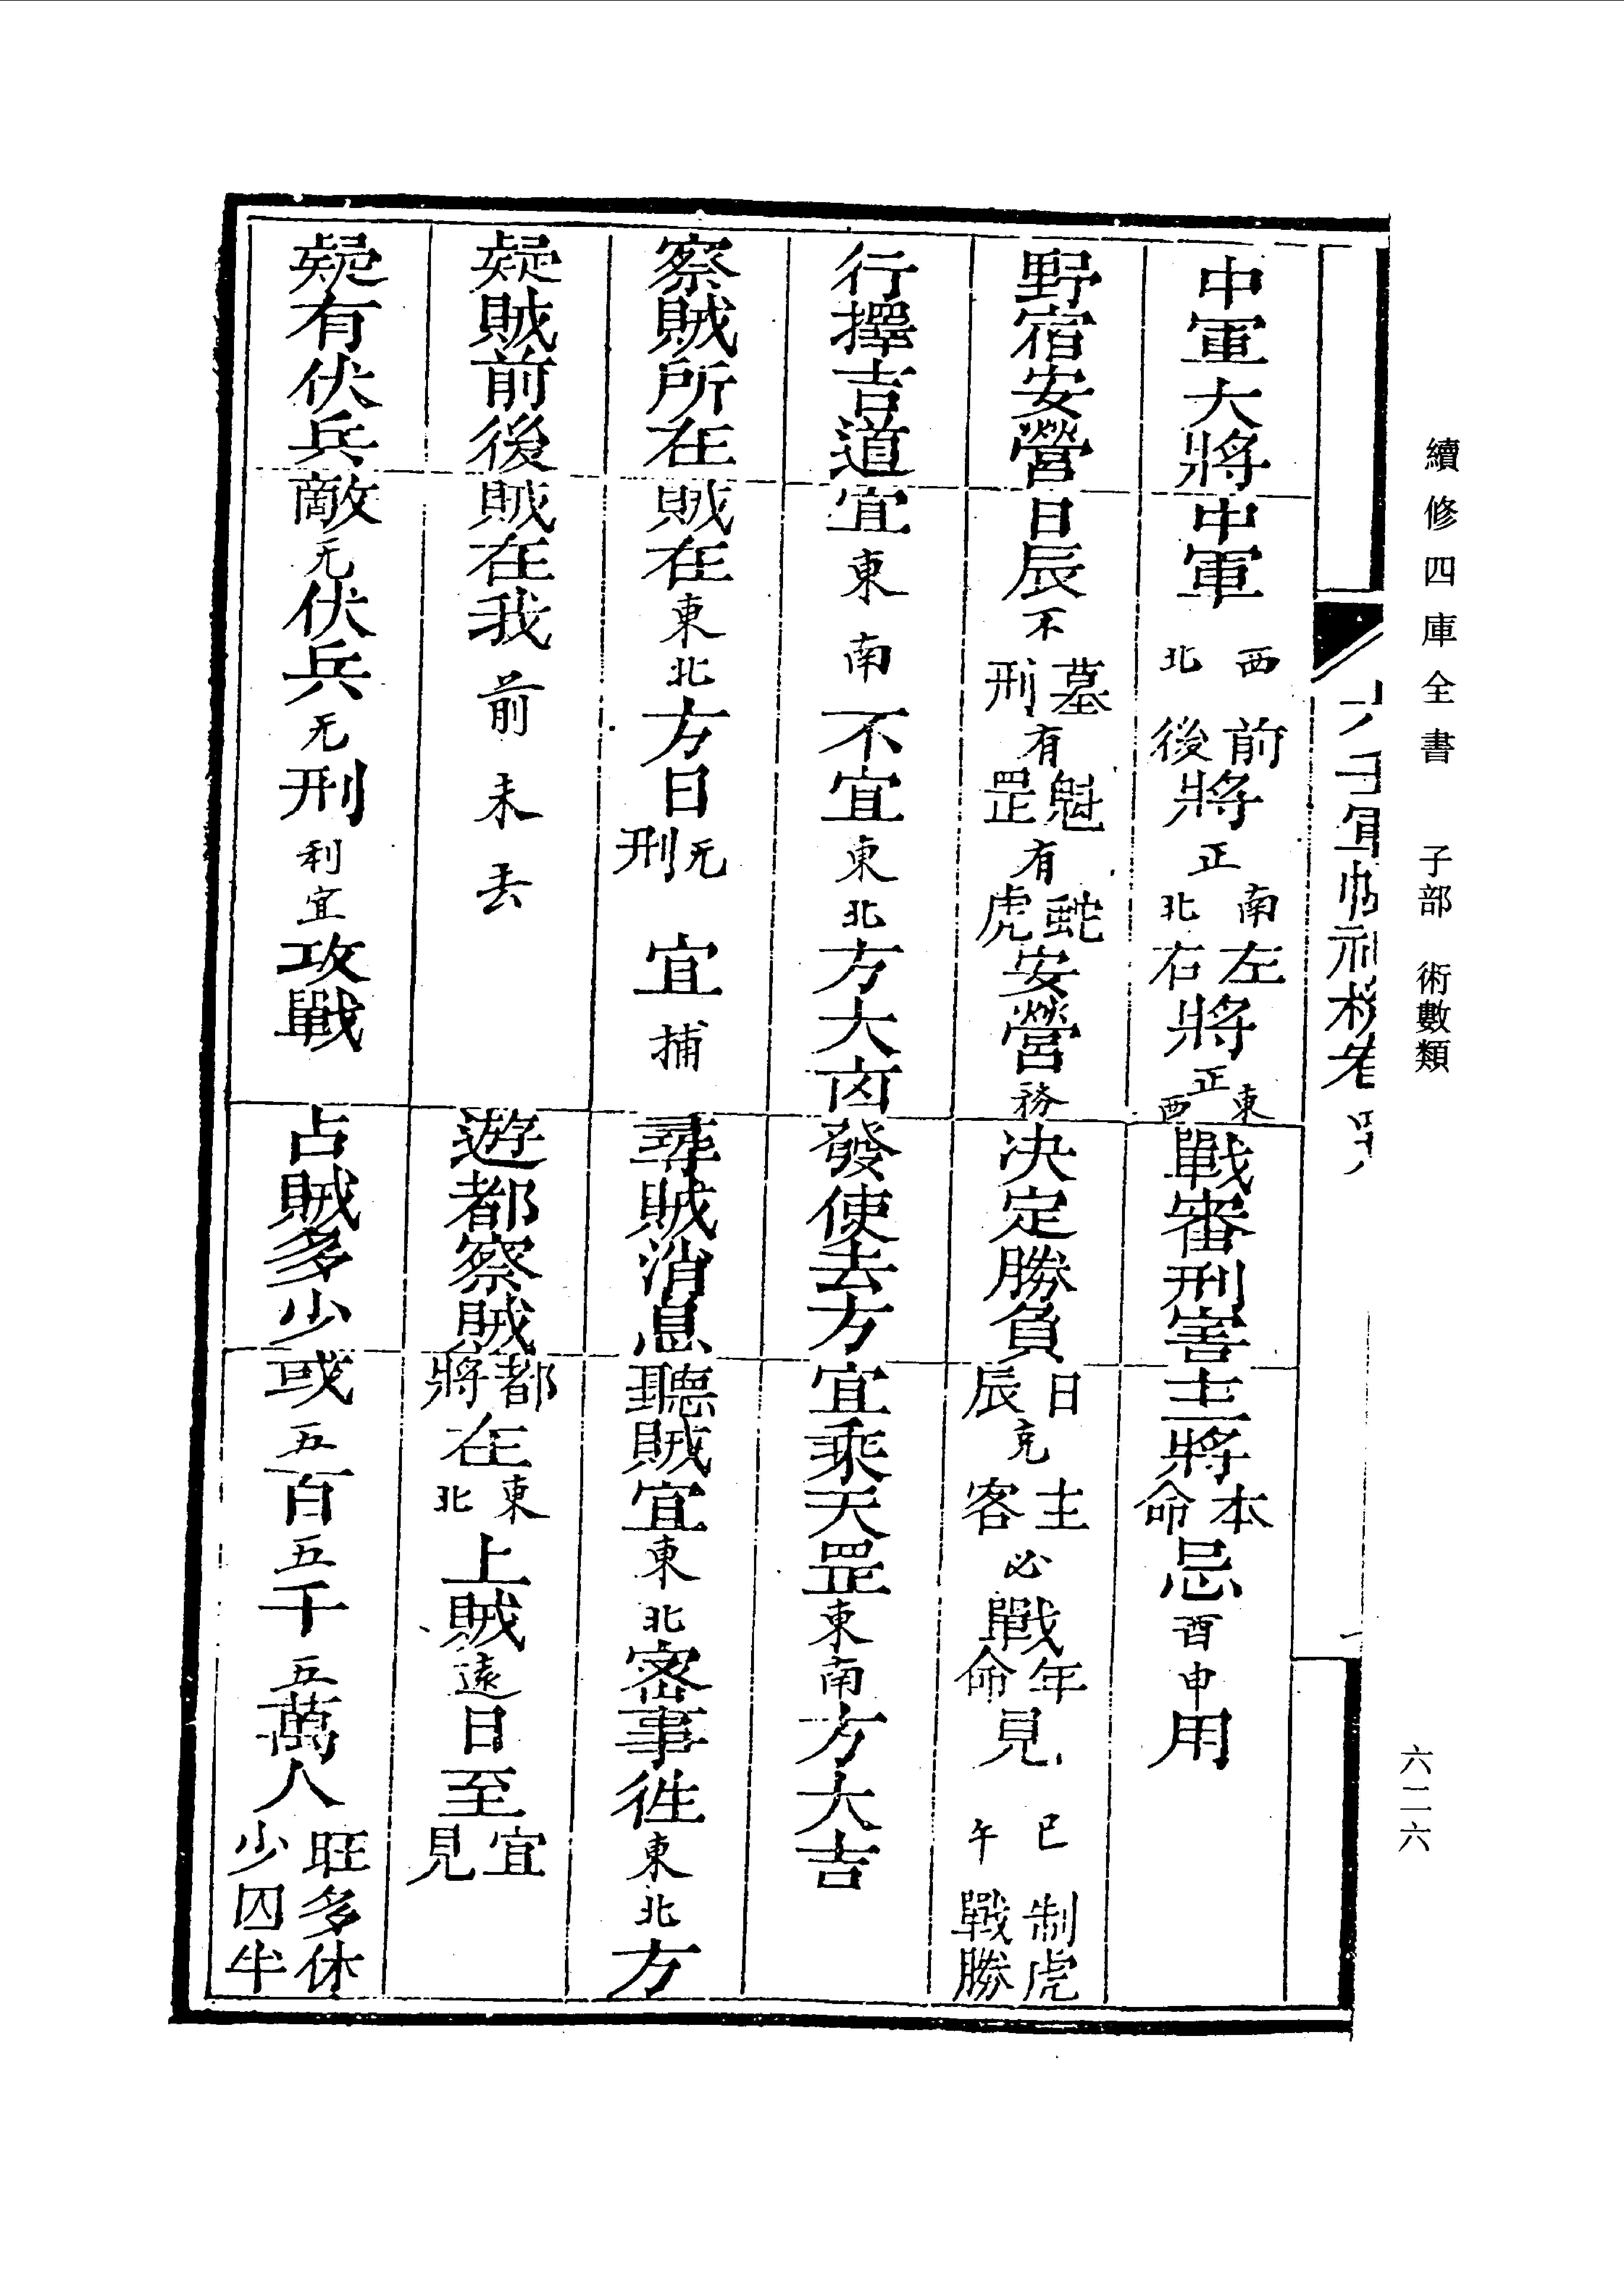 續修四庫全書 子部 術數類
六二六
六壬軍帳神機卷四十八
中軍大將 中軍西北前後將正南北左右將正東西 戰審刑害 主將本命忌酉申用
野宿安營 日辰不墓刑有魁罡有蛇虎安營務 決定勝負 日辰克主客必戰年命見巳午制虎戰勝
行擇吉道 宜東南不宜東北方大凶 發使去方 宜乘天罡東南方大吉
察賊所在 賊在東北方日无刑宜捕 尋賊消息 聽賊宜東北密事徃東北方
疑賊前後 賊在我前未去 遊都察賊 都將在東北上賊遠日至宜見
疑有伏兵 敵无伏兵无刑利宜攻戰 占賊多少 或五百五千五萬人旺多休少囚半